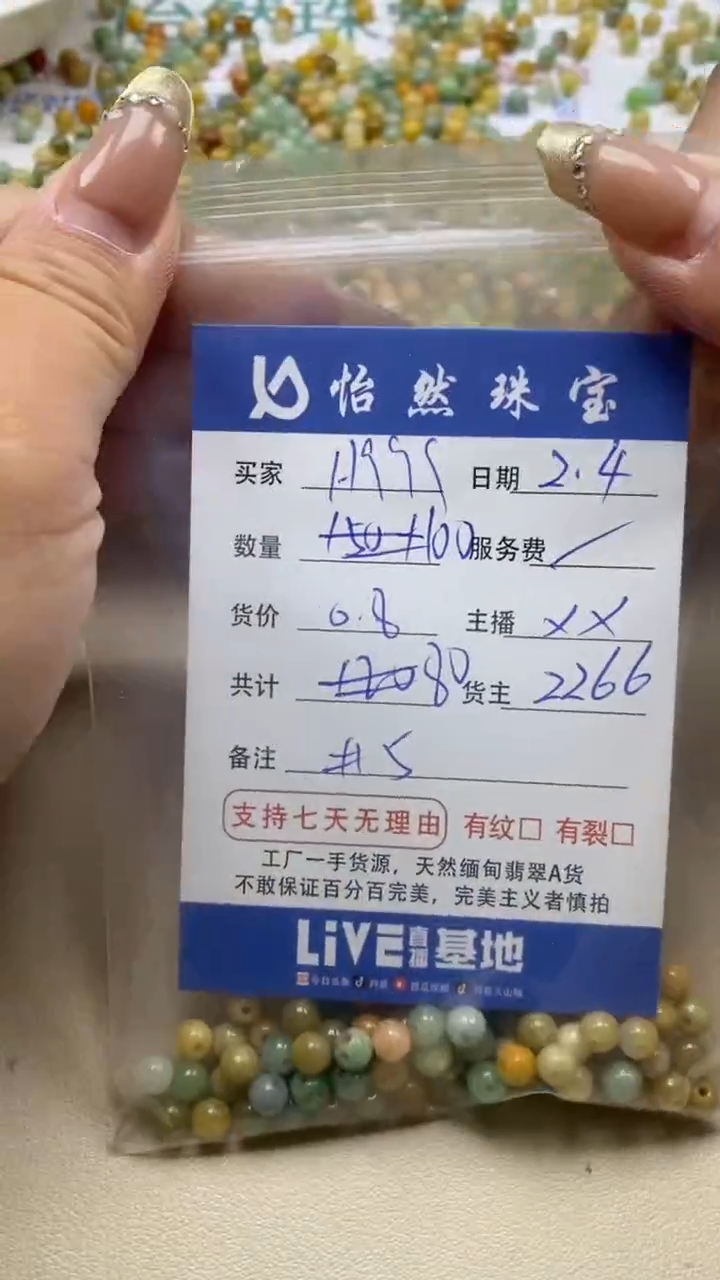 怡然珠宝
买家 日期 2.4
数量 100 服务费 /
货价 0.8 主播 XX
共计 80 货主 2266
备注 #5
支持七天无理由 有纹□ 有裂□
工厂一手货源，天然缅甸翡翠A货
不敢保证百分百完美，完美主义者慎拍
LiVE直播基地